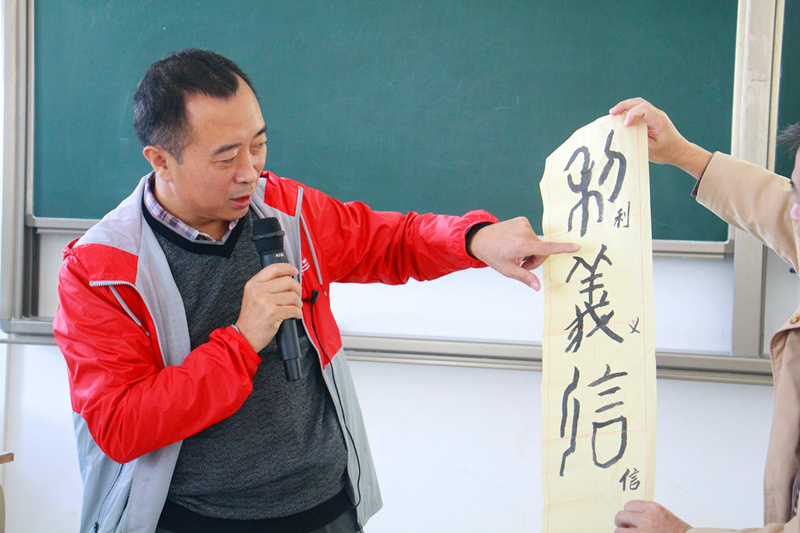 利義信
利
义
信